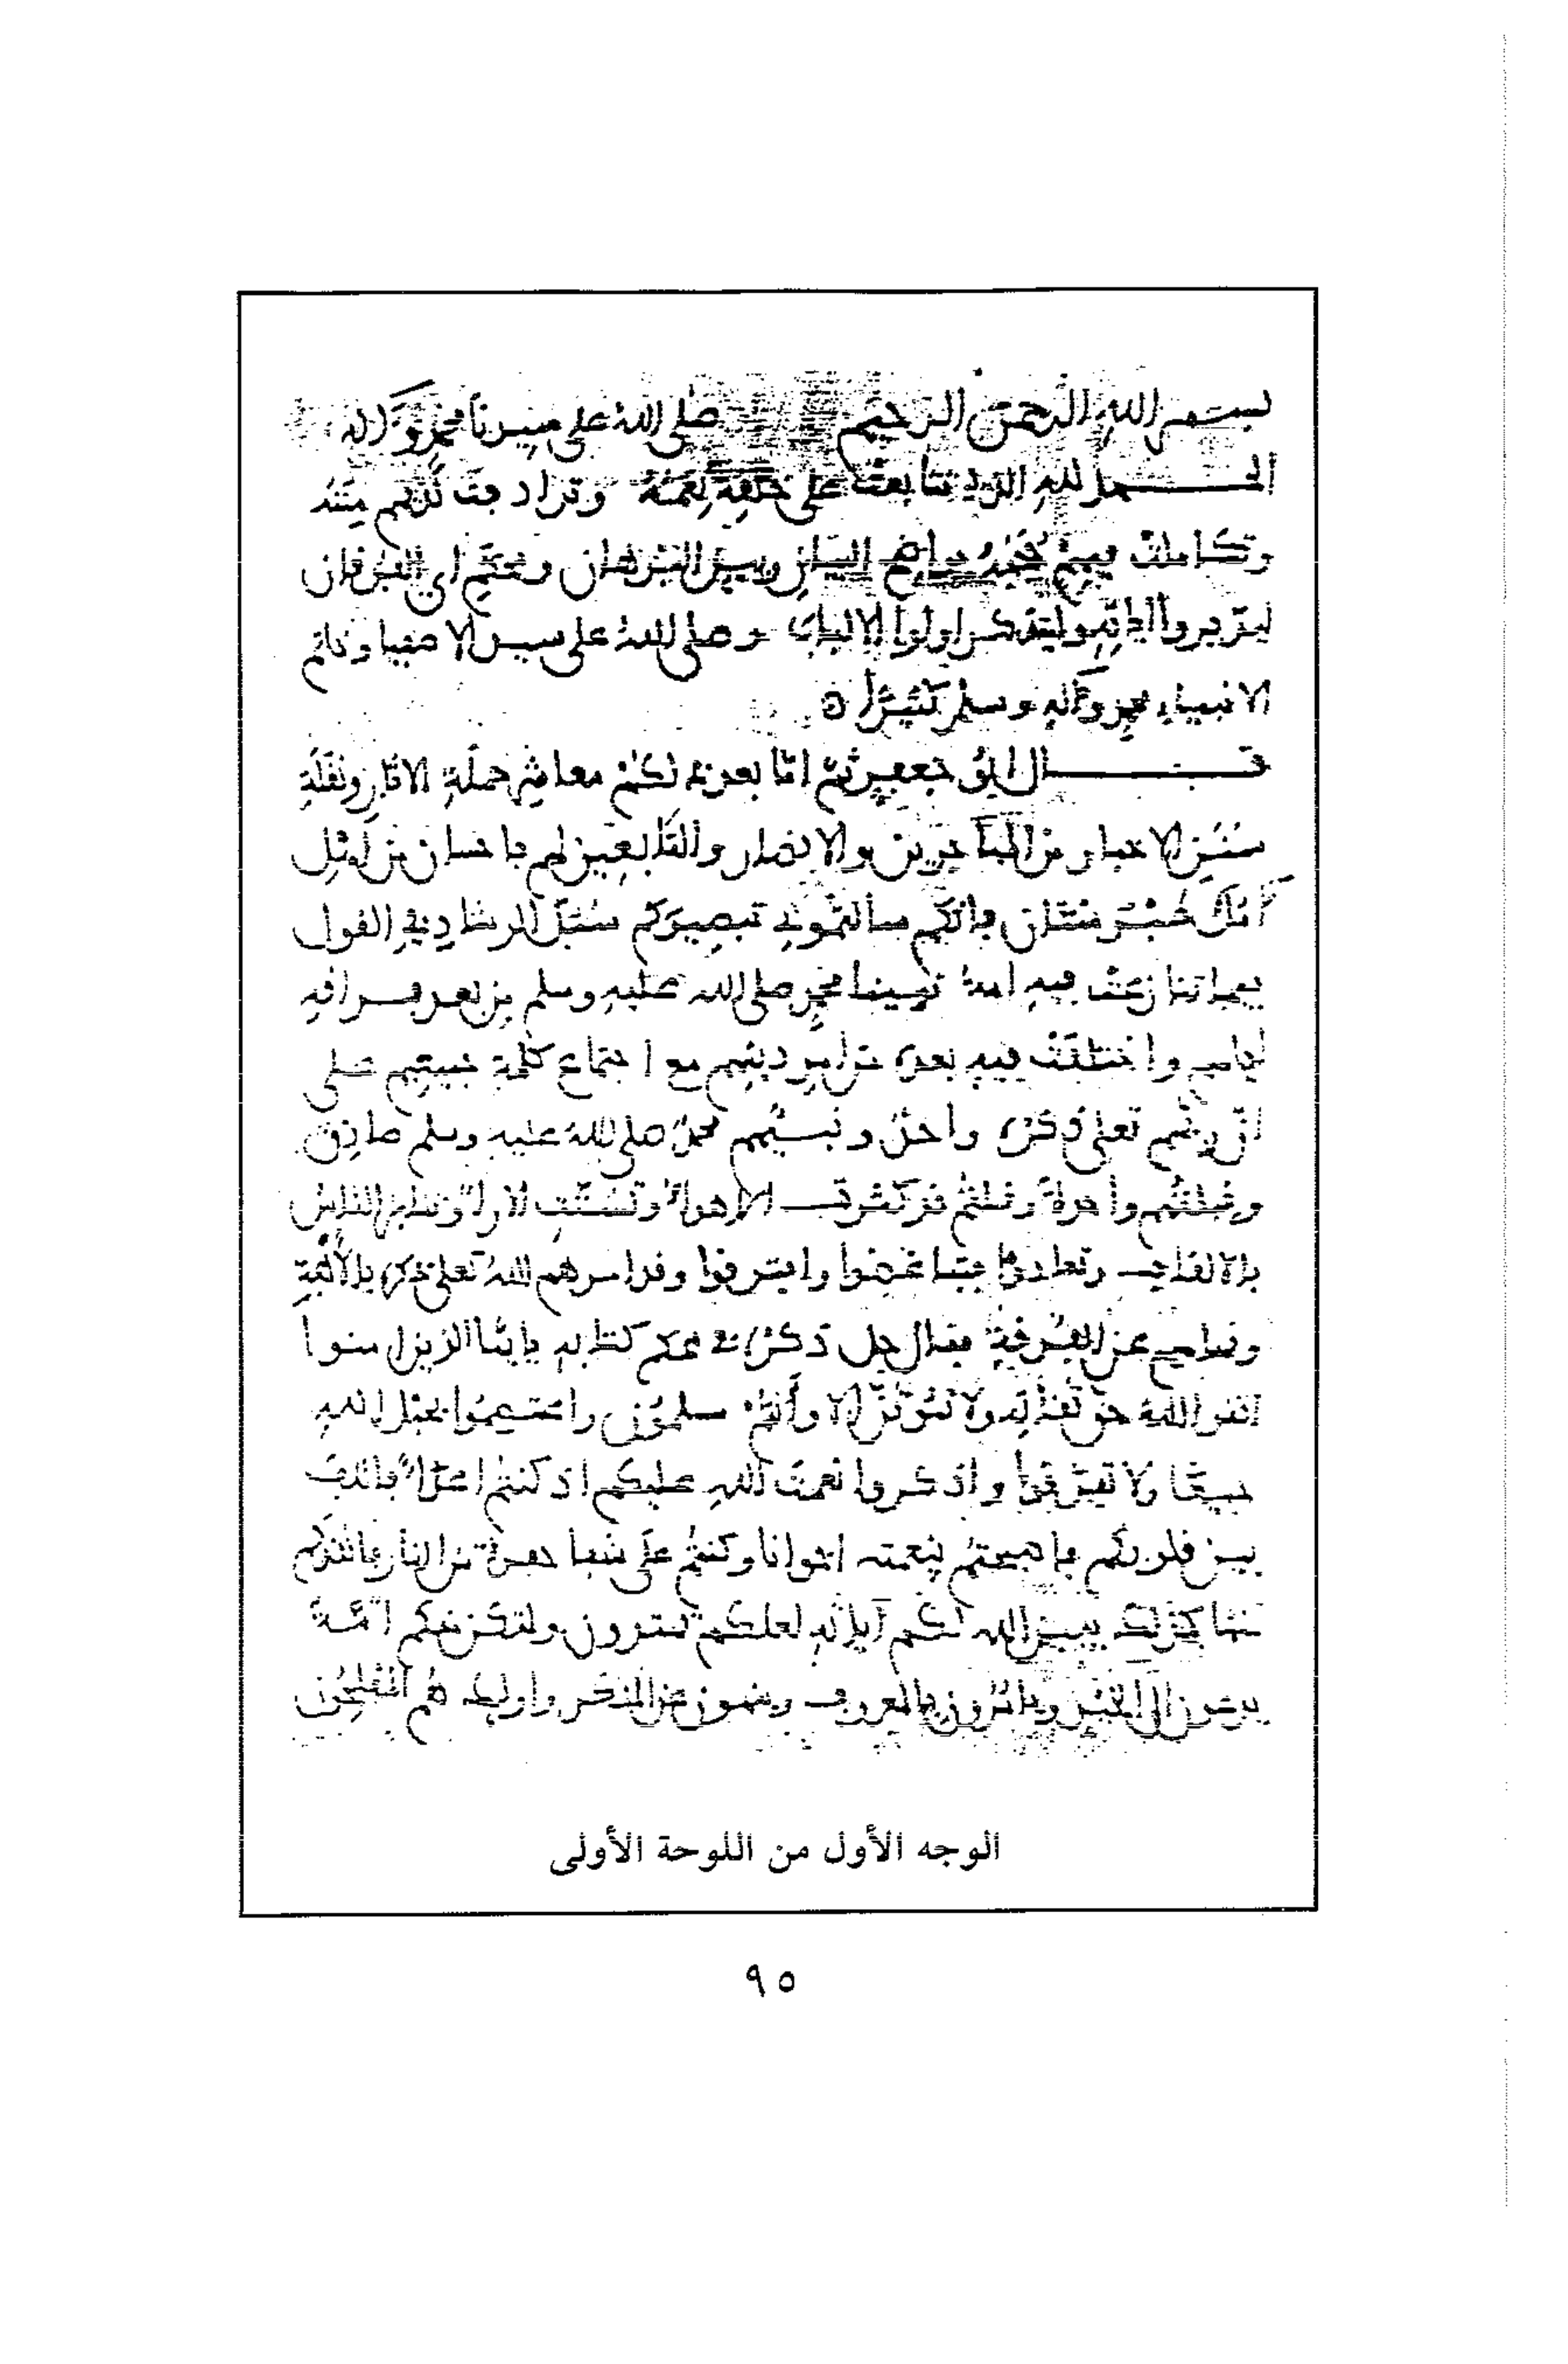 بسم الله الرحمن الرحيم صلى الله على سيدنا محمد وآله
الحمد لله الذي تتابعت على خلقه نعمه وترادفت لديهم مننه
وتكاملت فيهم حججه بواضح البيان وبين البرهان ومحكم آي الفرقان
ليدبروا آياته وليتذكر أولوا الالباب وصلى الله على سيد الاصفيا وخاتم
الانبياء محمد وآله وسلم كثيرا
قال ابو جعفر ثم اما بعد لكم معاشر حملة الاثار ونقلة
سنن الاخبار من المهاجرين والانصار والتابعين لهم باحسان من اهل
فانكم سالتموني تبصيركم سبل الرشاد في القول
فيما تنازعت فيه امة نبينا محمد صلى الله عليه وسلم من بعد فراقه
اياهم واختلفت فيه بعده من امر دينهم مع اجتماع كلمة جميعهم على
ان ربهم تعلى ذكره واحد ونبيهم محمد صلى الله عليه وسلم صادق
وقبلتهم واحدة وقلتم قد كثرت الاهواء وتشتتت الاراء وتنابز الناس
بالالقاب وتعادوا فتباغضوا وافترقوا وقد امرهم الله تعلى ذكره بالألفة
ونهاهم عن الفرقة فقال جل ذكره في محكم كتابه يايها الذين امنوا
اتقوا الله حق تقاته ولا تموتن إلا وأنتم مسلمون واعتصموا بحبل الله
جميعا ولا تفرقوا واذكروا نعمت الله عليكم اذ كنتم اعداء فالف
بين قلوبكم فاصبحتم بنعمته اخوانا وكنتم على شفا حفرة من النار فانقذكم
منها كذلك يبين الله لكم آياته لعلكم تهتدون ولتكن منكم امة
يدعون الى الخير ويامرون بالمعروف وينهون عن المنكر واوليك هم المفلحون
الوجه الأول من اللوحة الأولى
٩٥